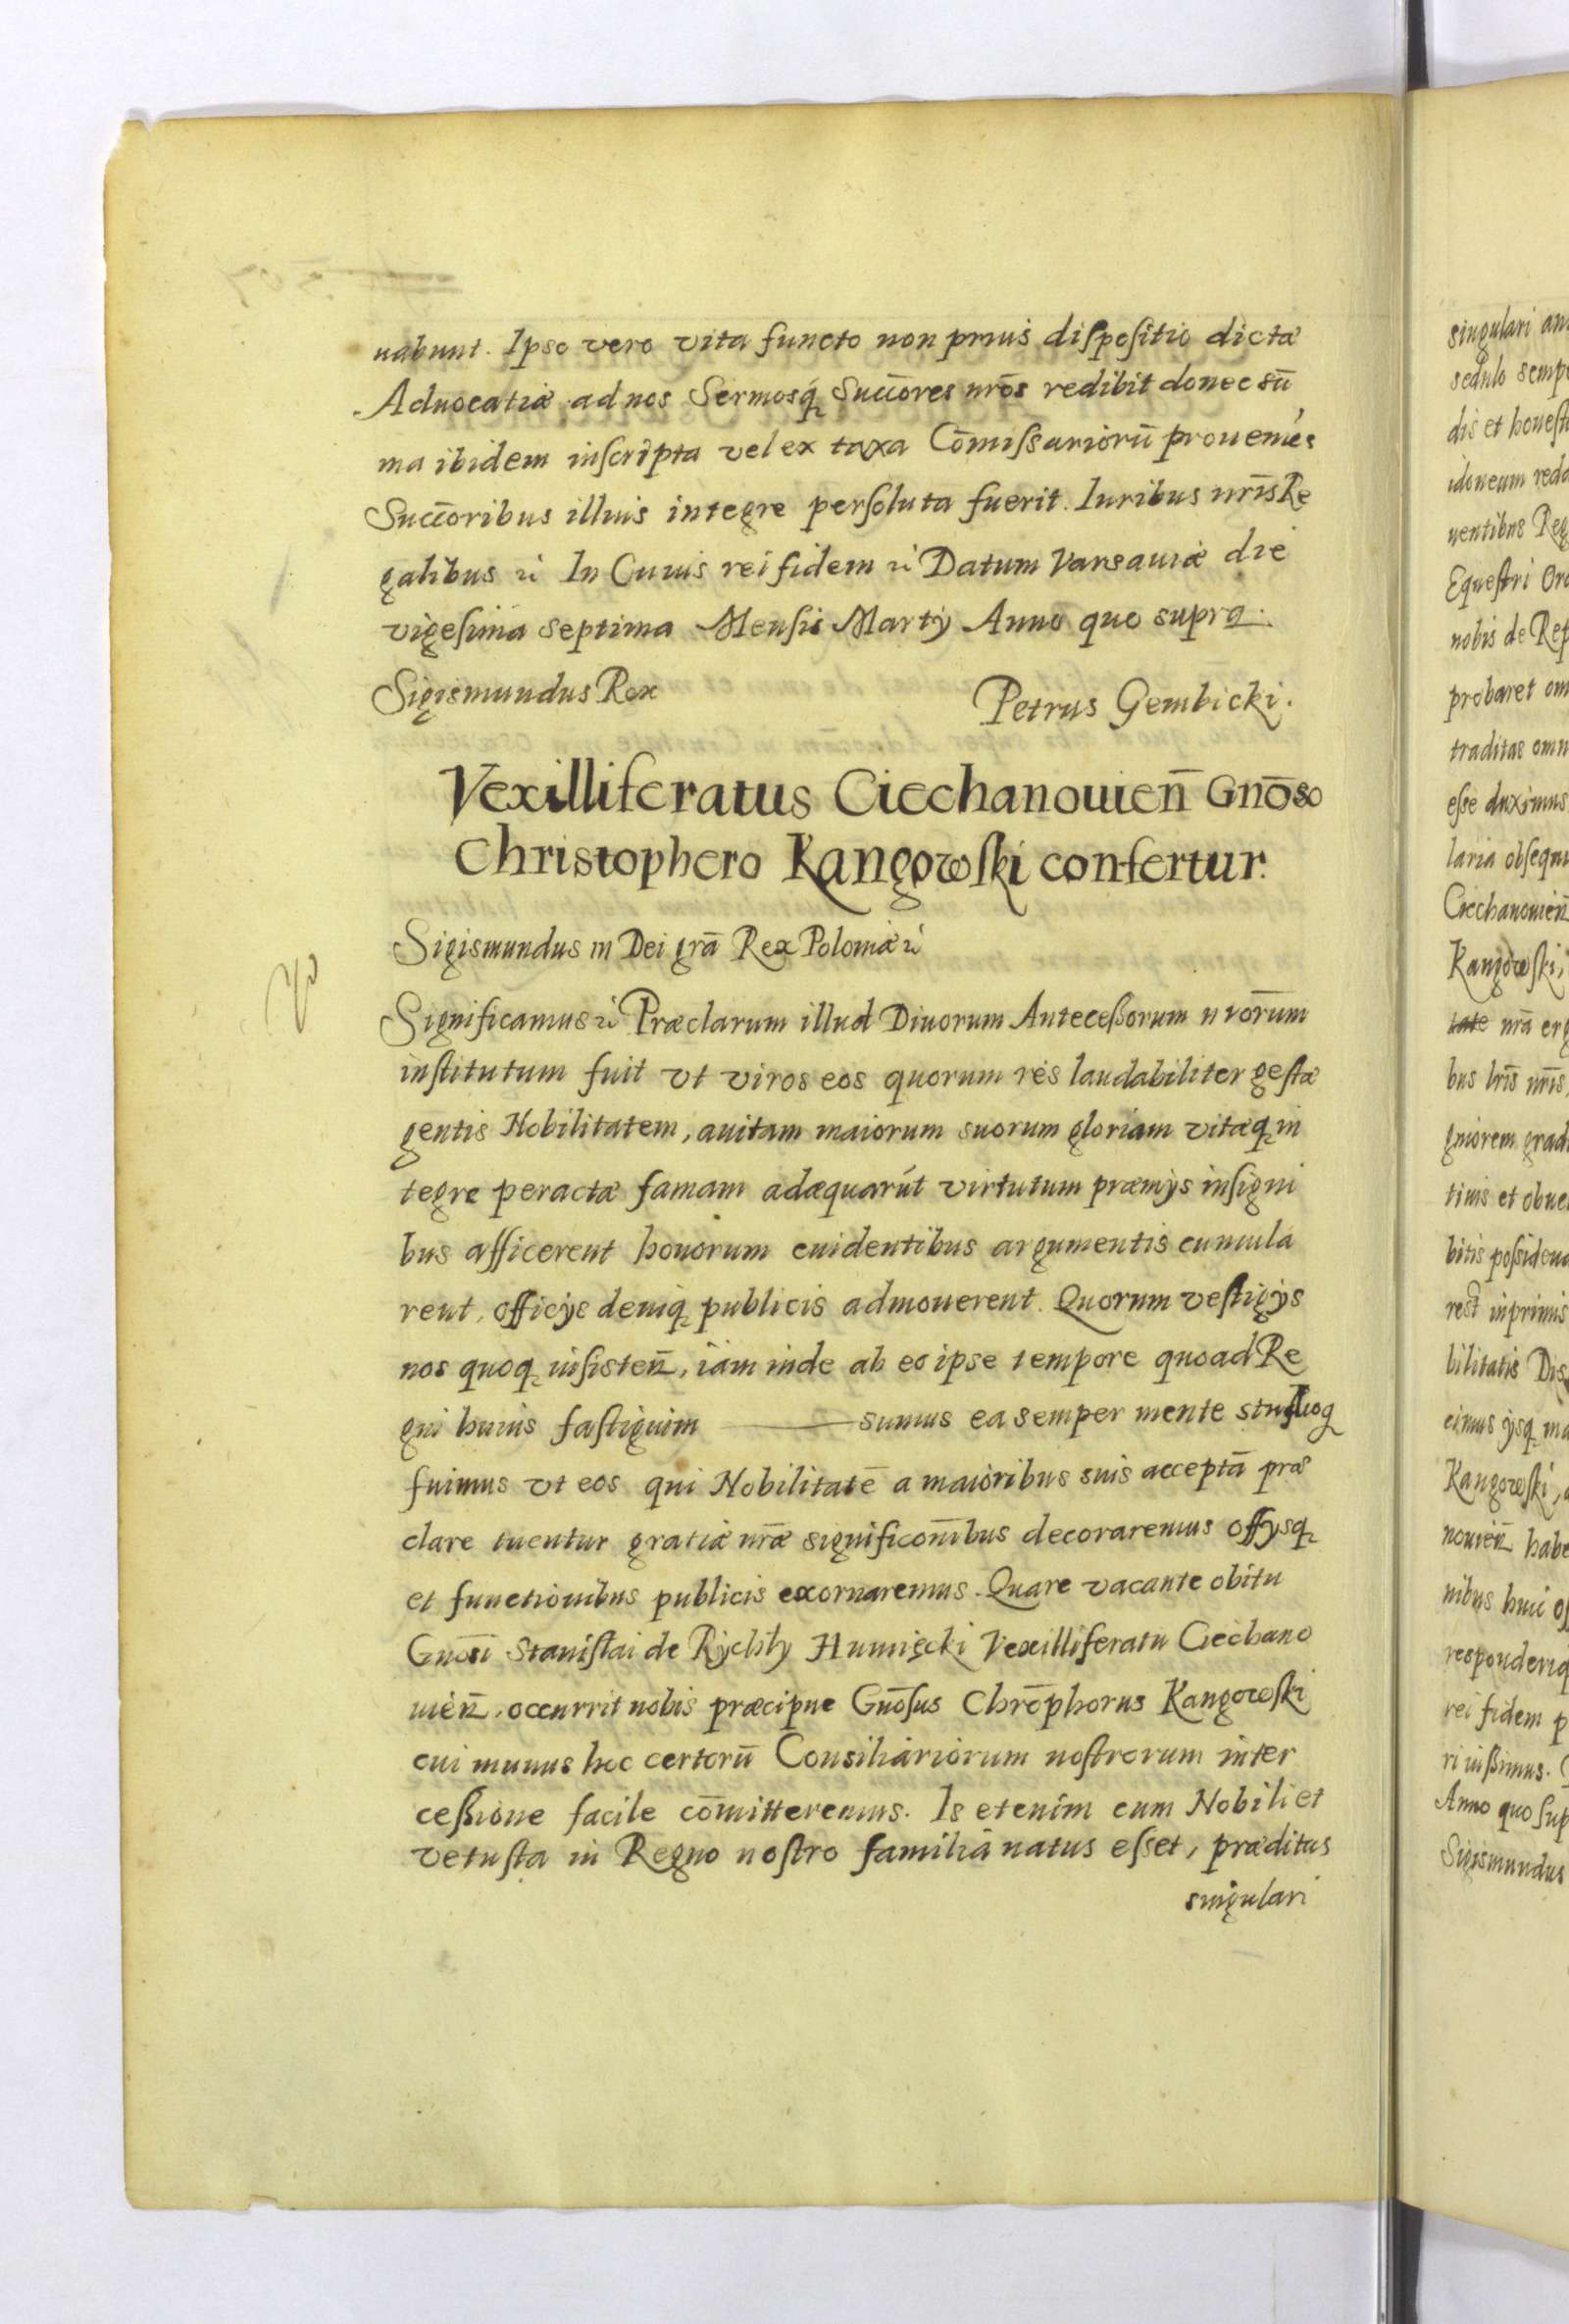 uabunt. Ipso vero vita functo non prius dispositio dictæ
Aduocatiæ ad nos Sermosq́ Succ̄ores nr̄os redibit donec sū
ma ibidem inscripta vel ex taxa Cōmissariorū proueniēs
Succ̄oribus illius integre persoluta fuerit. Iuribus nr̄is Re
galibus etc In Cuius rei fidem etc Datum Varsauiæ die
vigesima septima Mensis Martÿ Anno quo supra.
Sigismundus Rex
Petrus Gembicki.
Vexilliferatus Ciechanouien̄ Gnōso
Christophero Kangowski confertur.
Sigismundus III Dei grā Rex Poloniæ etc
V
Significamus etc Præclarum illud Diuorum Antecessorum nrōrum
institutum fuit vt viros eos quorum res laudabiliter gestæ
gentis Nobilitatem, auitam maiorum suorum gloriam vitæq in
tegre peractæ famam adæquarūt virtutum præmÿs insigni
bus afficerent honorum euidentibus argumentis cumula
rent, officÿs deniq publicis admouerent. Quorum vestigÿs
nos quoq insisten̄, iam inde ab eo ipse tempore quo ad Re
gni huius fastigium ——— sumus ea semper mente studioq
fuimus vt eos qui Nobilitatē a maioribus suis acceptā præ
clare tuentur gratiæ nr̄æ significon̄ibus decoraremus offÿsq
et functionibus publicis exornaremus. Quare vacante obitu
Gnōsi Stanislai de Rÿchlÿ Humięcki Vexilliferatu Ciechano
uien̄, occurrit nobis præcipue Gnōsus Chrōphorus Kangowski
cui munus hoc certorū Consiliariorum nostrorum inter
cessione facile cōmitteremus. Is etenim cum Nobili et
vetusta in Regno nostro familia natus esset, præditus
singulari
singulari
sedulo
dis et honest
idoneum
uentibus Reg
Equestri Ord
nobis de Rep
probaret om
traditas omn
esse duximus
laria obsequi
Ciechanouien̄
Kangowski,
tate nrā erg
bus lr̄is nr̄is,
gniorem grad
tinis et obue
bitis possiden
rest inprimis
bilitatis Dis
cimus ÿsq ma
Kangowski,
nouien̄ habe
nibus huic of
respondeniq
rei fidem p
ri iussimus.
Anno quo sup
Sigismundus